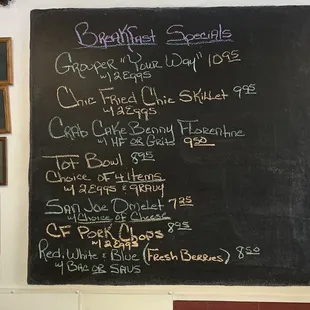 Breakfast Specials
Grouper "Your Way" 10.95
w/ 2 Eggs
Chic Fried Chic Skillet 9.95
w/ 2 Eggs
Crab Cake Benny Florentine
w/ HF or Grits 9.50
Tot Bowl 8.95
Choice of 4 Items
w/ 2 Eggs & Gravy
San Joe Omelet 7.25
w/ Choice of Cheese
CF Pork Chops 8.95
w/ 2 Eggs
Red, White & Blue (Fresh Berries) 8.50
w/ Bac or Saus